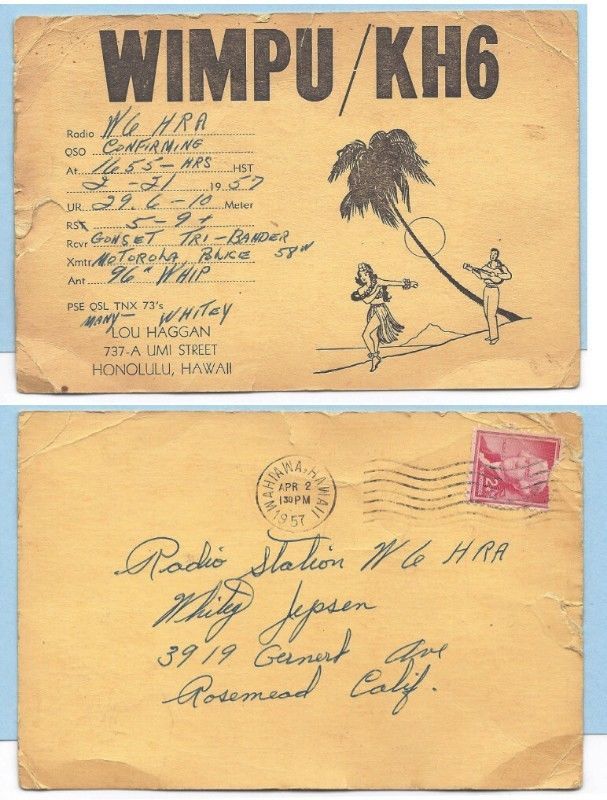 WIMPU/KH6
Radio W6 HRA
QSO CONFIRMING
At 1655-HRS HST
2-21 1957
UR 29.6-10 Meter
RST 5-9+
Rcvr GONSET TRI-BANDER
Xmtr MOTOROLA, POLICE 58W
Ant 96" WHIP
PSE QSL TNX 73's
MANY- WHITEY
LOU HAGGAN
737-A UMI STREET
HONOLULU, HAWAII
WAHIAWA, HAWAII
APR 2
130PM
1957
2¢
Radio Station W6 HRA
Whitey Jepsen
3919 Gernert Ave
Rosemead Calif.